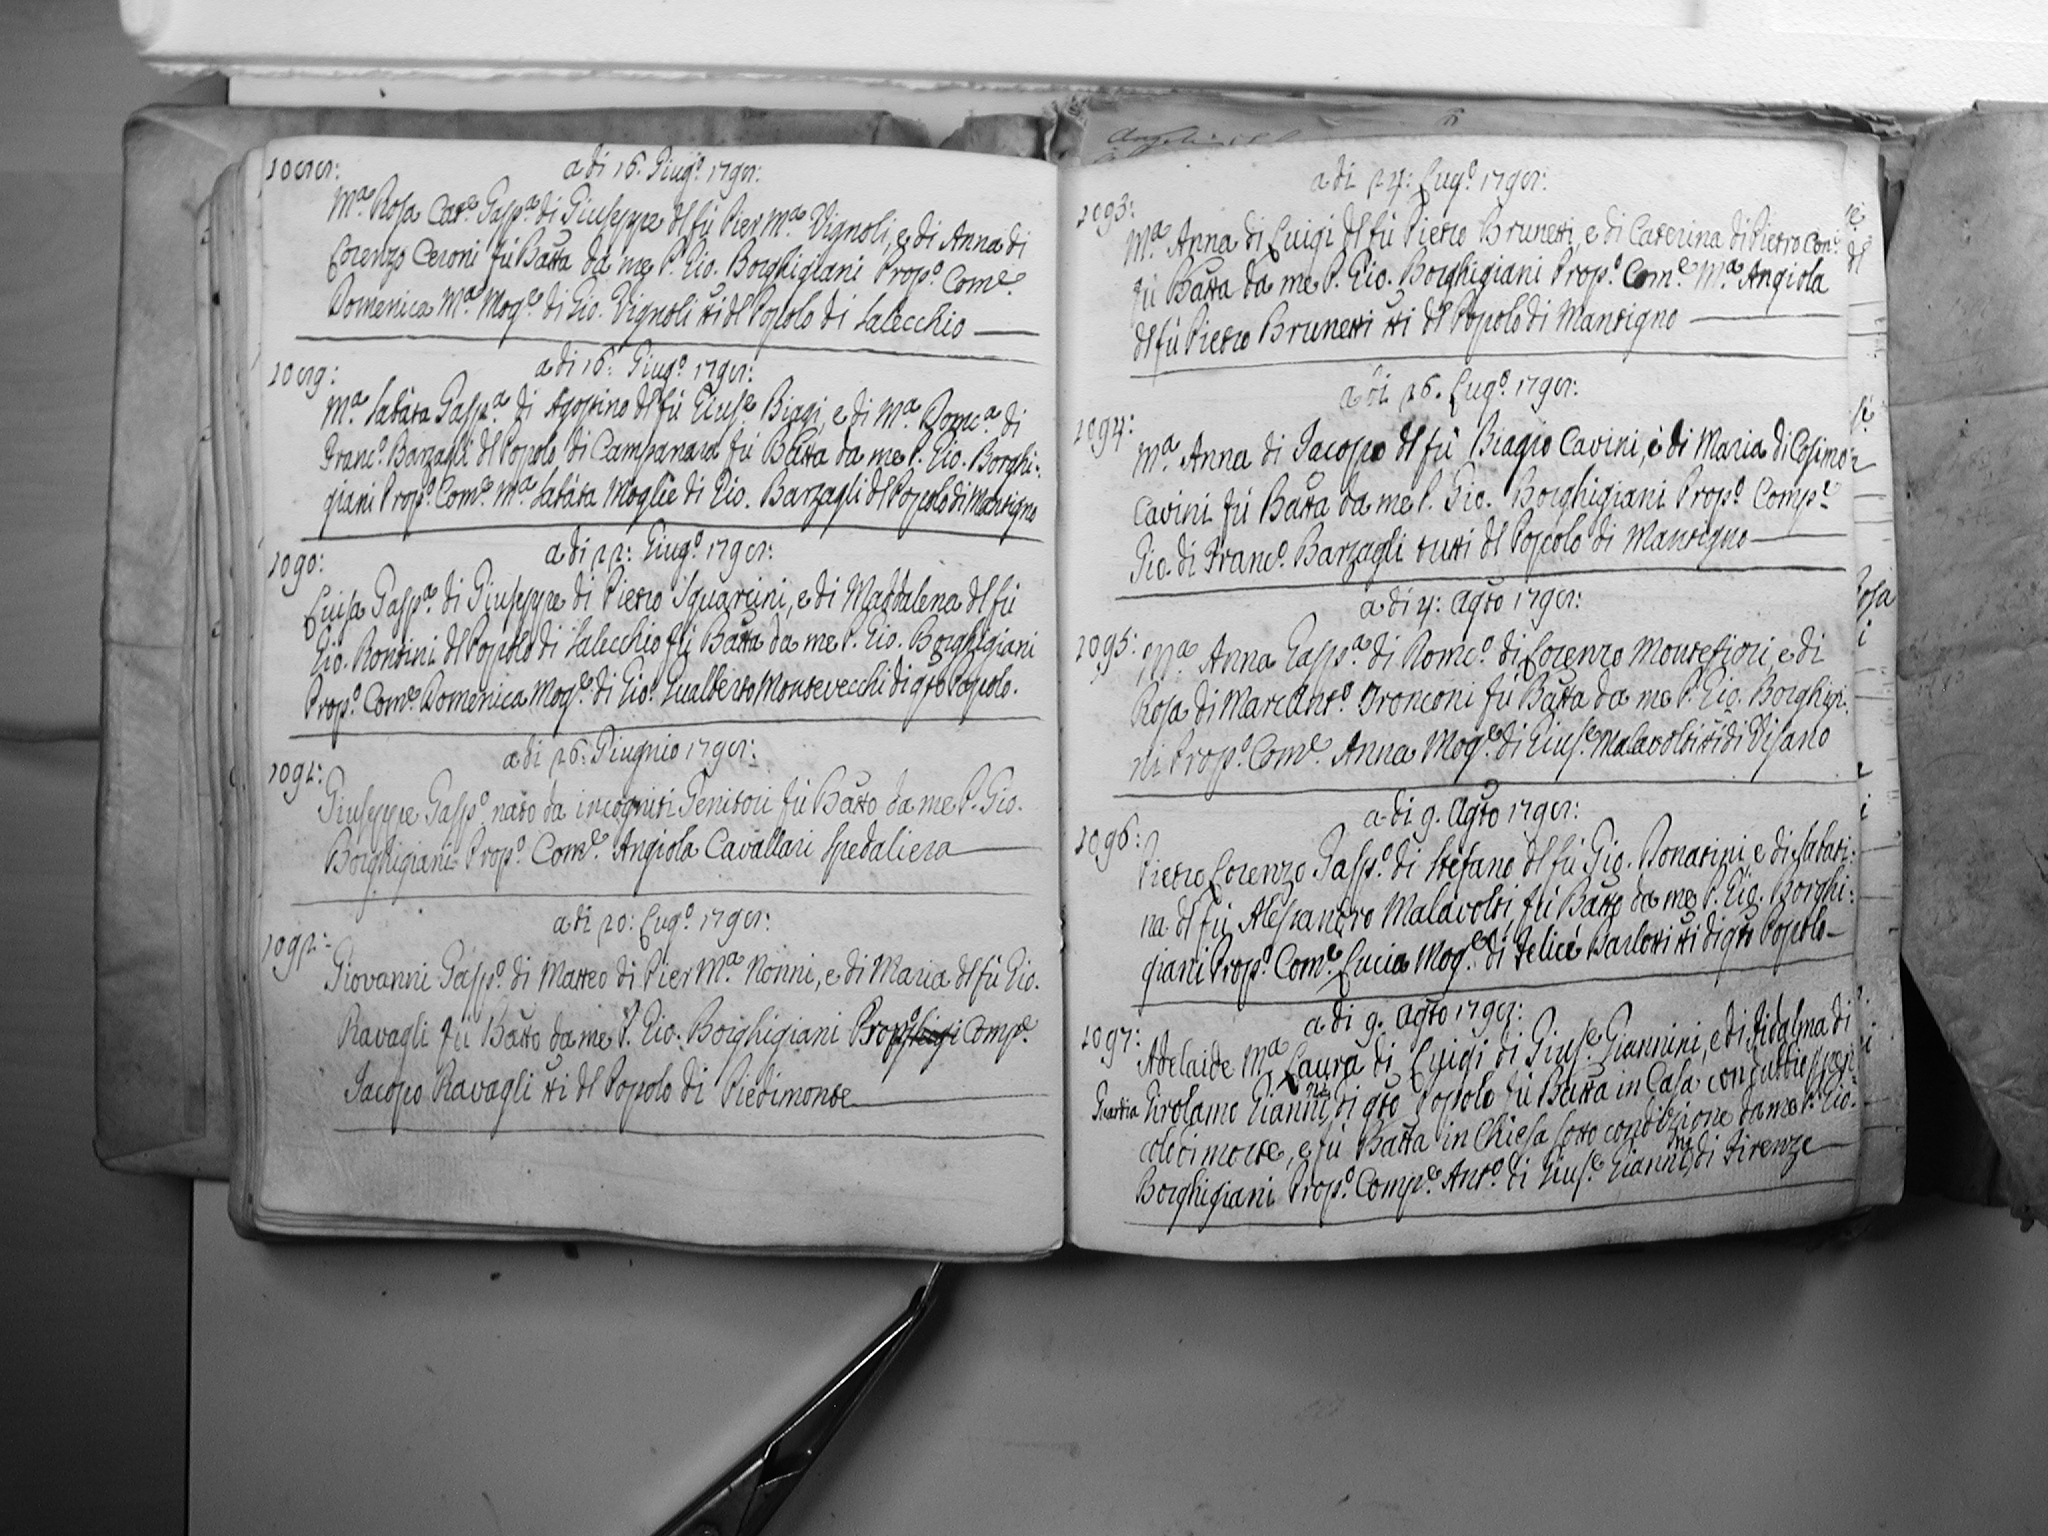 1088: a di 16. Giug.º 1798:
M.ª Rosa Cat.ª Gasp.ª di Giuseppe dl fù Pier M.ª Vignoli, e di Anna di
Lorenzo Ceroni fù Batta da me P. Gio. Borghigiani Prop.º Com.e
Domenica M.ª Mog.e di Gio. Vignoli tti dl Popolo di Salecchio
1089: a di 16: Giug.º 1798:
M.ª Sabata Gasp.ª di Agostino dl fù Gius.e Biagi, e di M.ª Domc.ª di
Franc.º Barzagli dl Popolo di Campanara fù Batta da me P. Gio. Borghi:
giani Prop.º Com.e M.ª Sabata Moglie di Gio. Barzagli dl Popolo di Mantigno
1090: a di 22: Giug.º 1798:
Luisa Gasp.ª di Giuseppe di Pietro Squarcini, e di Maddalena dl fù
Gio. Rontini dl Popolo di Salecchio fù Batta da me P. Gio. Borghigiani
Prop.º Com.e Domenica Mog.e di Gio. Gualberto Montevecchi di qto Popolo.
1091: a di 26: Giugnio 1798:
Giuseppe Gasp.º nato da incogniti Genitori fù Batto da me P. Gio.
Borghigiani Prop.º Com.e Angiola Cavallari Spedaliera
1092: a di 20: Lug.º 1798:
Giovanni Gasp.º di Matteo di Pier M.ª Nonni, e di Maria dl fù Gio.
Ravagli fù Batto da me P. Gio. Borghigiani Prop.º Comp.e
Jacopo Ravagli tti dl Popolo di Piedimonte
1093: a di 24: Lug.º 1798:
M.ª Anna di Luigi dl fù Pietro Brunetti, e di Caterina di Pietro Con:
fù Batta da me P. Gio. Borghigiani Prop.º Com.e M.ª Angiola
dl fù Pietro Brunetti tti dl Popolo di Mantigno
1094: a di 26. Lug.º 1798:
M.ª Anna di Jacopo dl fù Biagio Cavini, e di Maria di Cosimo
Cavini fù Batta da me P. Gio. Borghigiani Prop.º Comp.e
Gio. di Franc.º Barzagli tutti dl Popolo di Mantigno
1095: a di 4: Agto 1798:
M.ª Anna Gasp.ª di Domc.º di Lorenzo Montefiori, e di
Rosa di Marcant.º Tronconi fù Batta da me P. Gio. Borghigi:
ni Prop.º Com.e Anna Mog.e di Gius.e Malavolti tti di Visano
1096: a di 9. Agto 1798:
Pietro Lorenzo Gasp.º di Stefano dl fù Gio. Donatini, e di Sabati:
na dl fù Alessandro Malavolti fù Batto da me P. Gio. Borghi:
giani Prop.º Com.e Lucia Mog.e di Felice Barlotti tti di qto Popolo
1097: a di 9. Agto 1798:
Adelaide M.ª Laura di Luigi di Gius.e Giannini, e di Fidalma di
Girolamo Giannini, di qto Popolo fù Batta in Casa
coledi morte, e fù Batta in Chiesa sotto condizione da me P. Gio.
Borghigiani Prop.º Comp.e Ant.º di Gius.e Giannini, di Firenze